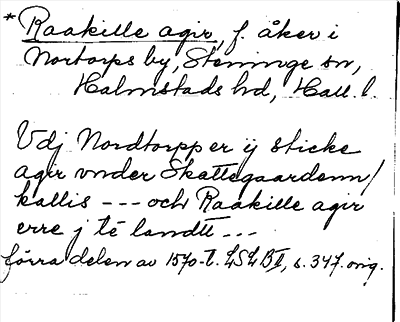 * Raakille agir, f. åker i
Nortorps by, Steninge sn,
Halmstads hd, Hall. l.
Vdj Nordtorpp er ij sticke
agir vnder Skattegaardenn/
kallis --- och Raakille agir
erre j té landtt ---
förra delen av 1570-t. LSL BII, s. 347. orig.